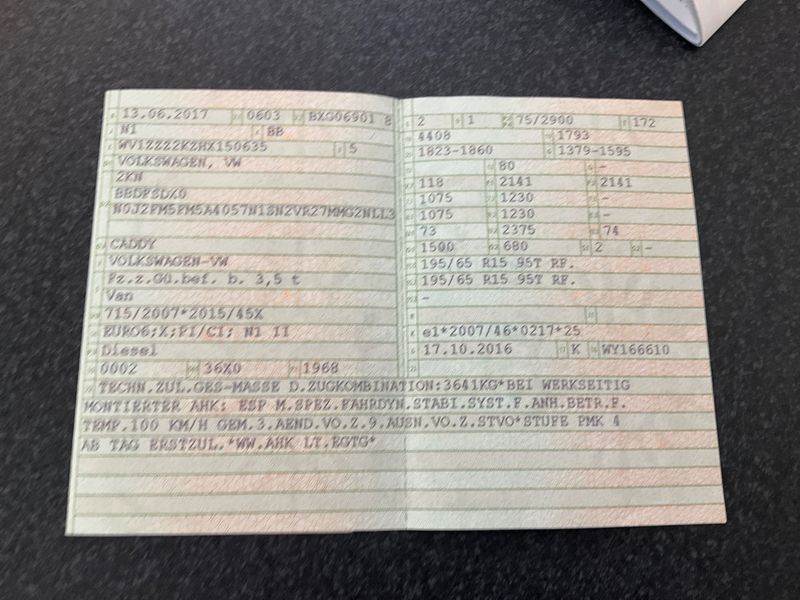 13.06.2017 0603 BXG06901 8
N1 BB
WV1ZZZ2KZHX150635 5
VOLKSWAGEN, VW
2KN
BBDFSDX0
N0J2FM5FM5A4057N1SN2VR27MMG2NLL3
CADDY
VOLKSWAGEN-VW
Fz.z.Gü.bef. b. 3,5 t
Van
715/2007*2015/45X
EURO6;X;PI/CI; N1 II
Diesel
0002 36X0 1968
2 1 75/2900 172
4408 1793
1823-1860 1379-1595
80 -
118 2141 2141
1075 1230 -
1075 1230 -
73 2375 74
1500 680 2 -
195/65 R15 95T RF.
195/65 R15 95T RF.
-
e1*2007/46*0217*25
17.10.2016 K WY166610
TECHN.ZUL.GES-MASSE D.ZUGKOMBINATION:3641KG*BEI WERKSEITIG
MONTIERTER AHK: ESP M.SPEZ.FAHRDYN.STABI.SYST.F.ANH.BETR.F.
TEMP.100 KM/H GEM.3.AEND.VO.Z.9.AUSN.VO.Z.STVO*STUFE PMK 4
AB TAG ERSTZUL.*WW.AHK LT.EGTG*